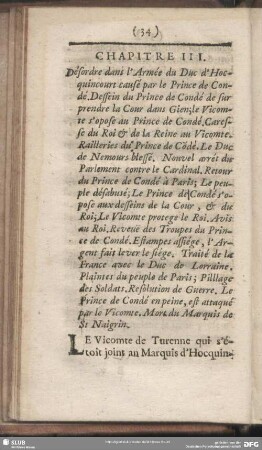 (34)
CHAPITRE III.
Désordre dans l'Armée du Duc d'Hoc-
quincourt causé par le Prince de Con-
dé. Dessein du Prince de Condé de sur
prendre la Cour dans Gien; le Vicom-
te s'opose au Prince de Condé. Cares-
se du Roi & de la Reine au Vicomte.
Railleries du Prince de Cõdé. Le Duc
de Nemours blessé. Nouvel arrêt du
Parlement contre le Cardinal. Retour
du Prince de Condé à Paris; Le peu-
ple désabusé; Le Prince de Condé s'o-
pose aux desseins de la Cour, & du
Roi; Le Vicomte protege le Roi. Avis
au Roi. Reveuë des Troupes du Prin-
ce de Condé. Estampes assiége, l'Ar-
gent fait lever le siége. Traité de la
France avec le Duc de Lorraine.
Plaintes du peuple de Paris; Pilllage
des Soldats. Resolution de Guerre. Le
Prince de Condé en peine, est attaqué
par le Vicomte. Mort du Marquis de
St Naigrin.
LE Vicomte de Turenne qui s'é-
toit joint au Marquis d'Hocquin-
SLUB